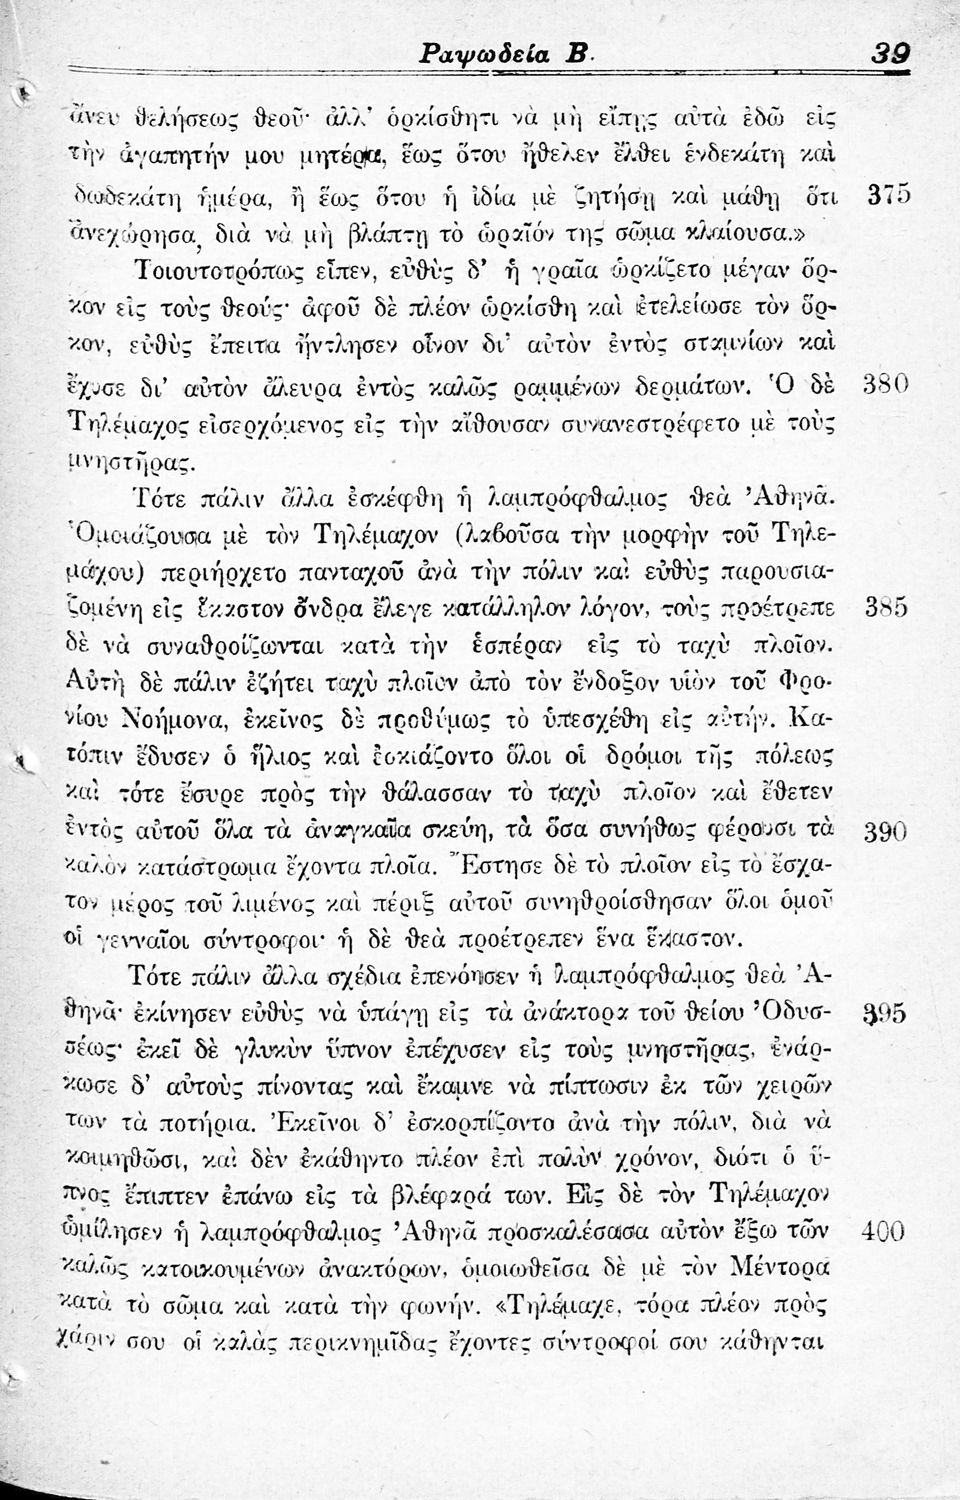 Ραψωδεία Β. 39
ἄνευ θελήσεως θεοῦ· ἀλλ’ ὁρκίσθητι νὰ μὴ εἴπῃς αὐτὰ ἐδῶ εἰς
τὴν ἀγαπητήν μου μητέρα, ἕως ὅτου ἤθελεν ἔλθει ἑνδεκάτη καὶ
δωδεκάτη ἡμέρα, ἢ ἕως ὅτου ἡ ἰδία μὲ ζητήσῃ καὶ μάθῃ ὅτι 375
ἀνεχώρησα, διὰ νὰ μὴ βλάπτῃ τὸ ὡραῖόν της σῶμα κλαίουσα.»
Τοιουτοτρόπως εἶπεν, εὐθὺς δ’ ἡ γραῖα ὡρκίζετο μέγαν ὅρ-
κον εἰς τοὺς θεούς· ἀφοῦ δὲ πλέον ὡρκίσθη καὶ ἐτελείωσε τὸν ὅρ-
κον, εὐθὺς ἔπειτα ἤντλησεν οἶνον δι’ αὐτὸν ἐντὸς σταμνίων καὶ
ἔχυσε δι’ αὐτὸν ἄλευρα ἐντὸς καλῶς ραμμένων δερμάτων. Ὁ δὲ 380
Τηλέμαχος εἰσερχόμενος εἰς τὴν αἴθουσαν συνανεστρέφετο μὲ τοὺς
μνηστῆρας.
Τότε πάλιν ἄλλα ἐσκέφθη ἡ λαμπρόφθαλμος θεὰ Ἀθηνᾶ.
Ὁμοιάζουσα μὲ τὸν Τηλέμαχον (λαβοῦσα τὴν μορφὴν τοῦ Τηλε-
μάχου) περιήρχετο πανταχοῦ ἀνὰ τὴν πόλιν καὶ εὐθὺς παρουσια-
ζομένη εἰς ἕκαστον ἄνδρα ἔλεγε κατάλληλον λόγον, τοὺς προέτρεπε 385
δὲ νὰ συναθροίζωνται κατὰ τὴν ἑσπέραν εἰς τὸ ταχὺ πλοῖον.
Αὐτὴ δὲ πάλιν ἐζήτει ταχὺ πλοῖον ἀπὸ τὸν ἔνδοξον υἱὸν τοῦ Φρο-
νίου Νοήμονα, ἐκεῖνος δὲ προθύμως τὸ ὑπεσχέθη εἰς αὐτήν. Κα-
τόπιν ἔδυσεν ὁ ἥλιος καὶ ἐσκιάζοντο ὅλοι οἱ δρόμοι τῆς πόλεως
καὶ τότε ἔσυρε πρὸς τὴν θάλασσαν τὸ ταχὺ πλοῖον καὶ ἔθετεν
ἐντὸς αὐτοῦ ὅλα τὰ ἀναγκαῖα σκεύη, τὰ ὅσα συνήθως φέρουσι τὰ 390
καλὸν κατάστρωμα ἔχοντα πλοῖα. Ἔστησε δὲ τὸ πλοῖον εἰς τὸ ἔσχα-
τον μέρος τοῦ λιμένος καὶ πέριξ αὐτοῦ συνηθροίσθησαν ὅλοι ὁμοῦ
οἱ γενναῖοι σύντροφοι· ἡ δὲ θεὰ προέτρεπεν ἕνα ἕκαστον.
Τότε πάλιν ἄλλα σχέδια ἐπενόησεν ἡ λαμπρόφθαλμος θεὰ Ἀ-
θηνᾶ· ἐκίνησεν εὐθὺς νὰ ὑπάγῃ εἰς τὰ ἀνάκτορα τοῦ θείου Ὀδυσ- 395
σέως· ἐκεῖ δὲ γλυκὺν ὕπνον ἐπέχυσεν εἰς τοὺς μνηστῆρας, ἐνάρ-
κωσε δ’ αὐτοὺς πίνοντας καὶ ἔκαμνε νὰ πίπτωσιν ἐκ τῶν χειρῶν
των τὰ ποτήρια. Ἐκεῖνοι δ’ ἐσκορπίζοντο ἀνὰ τὴν πόλιν, διὰ νὰ
κοιμηθῶσι, καὶ δὲν ἐκάθηντο πλέον ἐπὶ πολὺν χρόνον, διότι ὁ ὕ-
πνος ἔπιπτεν ἐπάνω εἰς τὰ βλέφαρά των. Εἰς δὲ τὸν Τηλέμαχον
ὡμίλησεν ἡ λαμπρόφθαλμος Ἀθηνᾶ προσκαλέσασα αὐτὸν ἔξω τῶν 400
καλῶς κατοικουμένων ἀνακτόρων, ὁμοιωθεῖσα δὲ μὲ τὸν Μέντορα
κατὰ τὸ σῶμα καὶ κατὰ τὴν φωνήν. «Τηλέμαχε, τόρα πλέον πρὸς
χάριν σου οἱ καλὰς περικνημῖδας ἔχοντες σύντροφοί σου κάθηνται